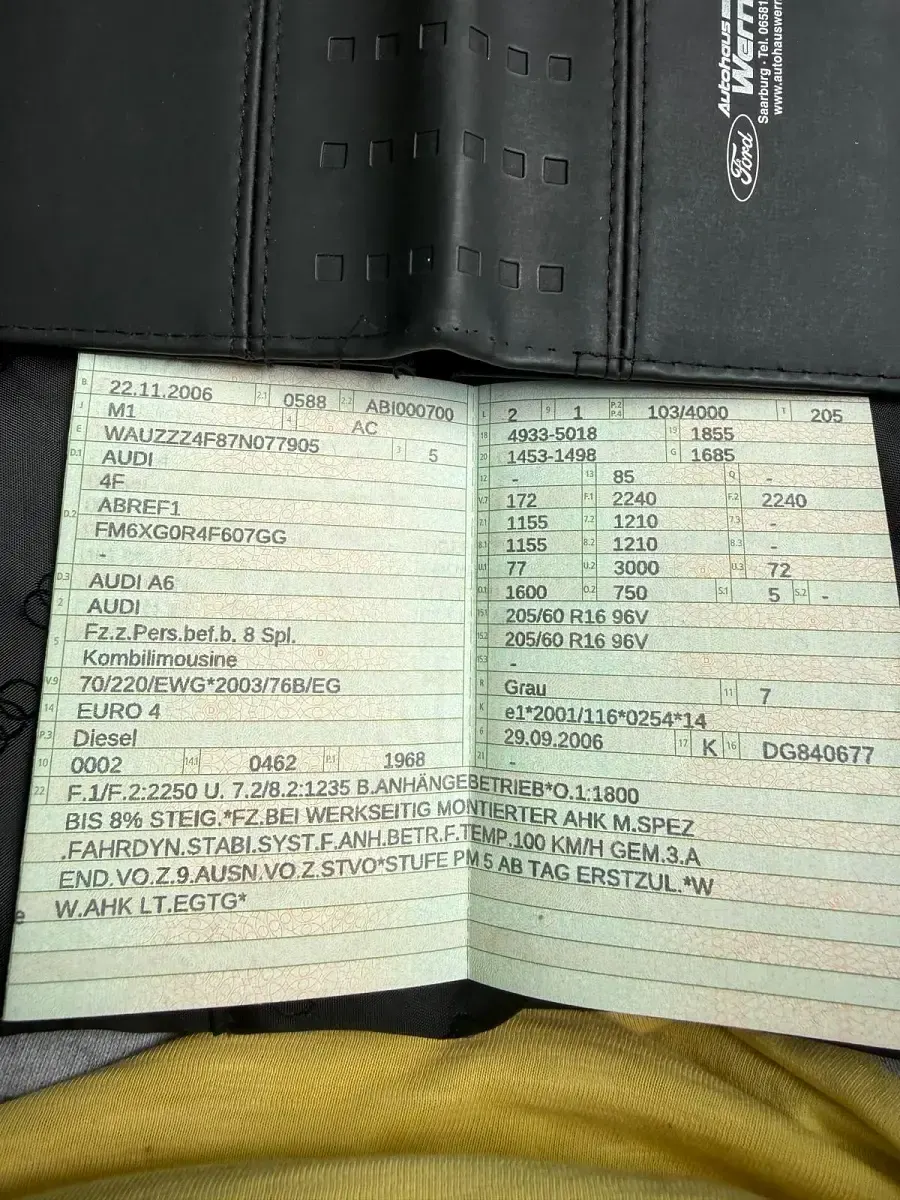 Autohaus
Wern
Saarburg · Tel. 06581
www.autohauswern
Ford
B 22.11.2006 2.1 0588 2.2 ABI000700
J M1 4 AC
E WAUZZZ4F87N077905 3 5
D.1 AUDI
4F
D.2 ABREF1
FM6XG0R4F607GG
-
D.3 AUDI A6
2 AUDI
5 Fz.z.Pers.bef.b. 8 Spl.
Kombilimousine
V.9 70/220/EWG*2003/76B/EG
14 EURO 4
P.3 Diesel
10 0002 14.1 0462 P.1 1968
L 2 9 1 P.2 P.4 103/4000 T 205
18 4933-5018 19 1855
20 1453-1498 G 1685
12 - 13 85 Q -
V.7 172 F.1 2240 F.2 2240
7.1 1155 7.2 1210 7.3 -
8.1 1155 8.2 1210 8.3 -
U.1 77 U.2 3000 U.3 72
O.1 1600 O.2 750 S.1 5 S.2 -
15.1 205/60 R16 96V
15.2 205/60 R16 96V
15.3 -
R Grau 11 7
K e1*2001/116*0254*14
6 29.09.2006 17 K 16 DG840677
21 -
22 F.1/F.2:2250 U. 7.2/8.2:1235 B.ANHÄNGEBETRIEB*O.1:1800
BIS 8% STEIG.*FZ.BEI WERKSEITIG MONTIERTER AHK M.SPEZ
.FAHRDYN.STABI.SYST.F.ANH.BETR.F.TEMP.100 KM/H GEM.3.A
END.VO.Z.9.AUSN.VO.Z.STVO*STUFE PM 5 AB TAG ERSTZUL.*W
W.AHK LT.EGTG*